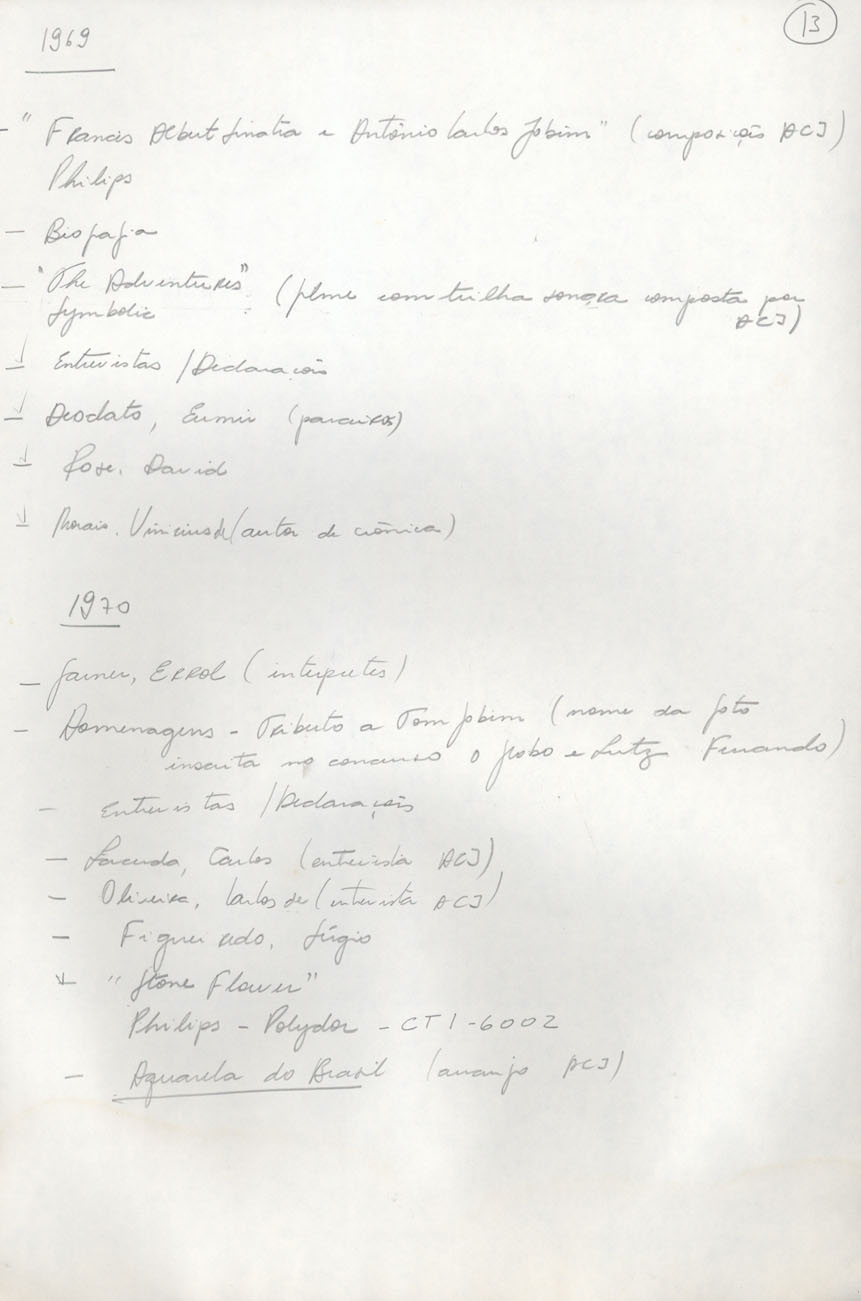 13
1969
- "Francis Albert Sinatra e Antônio Carlos Jobim" (composição ACJ)
Philips
- Biografia
- "The Adventures" (filme com trilha sonora composta por
Symbolic ACJ)
- Entrevistas / Declarações
- Deodato, Eumir (parceiros)
- Rose, David
- Morais, Vinicius de (autor de crônica)
1970
- Garner, Errol (interpretes)
- Homenagens - Tributo a Tom Jobim (nome da foto
inscrita no concurso O Globo e Lutz Ferrando)
- Entrevistas / Declarações
- Lacerda, Carlos (entrevista ACJ)
- Oliveira, Carlos de (entrevista ACJ)
- Figueiredo, Sérgio
- "Stone Flower"
Philips - Polydor - CTI-6002
- Aquarela do Brasil (arranjo ACJ)